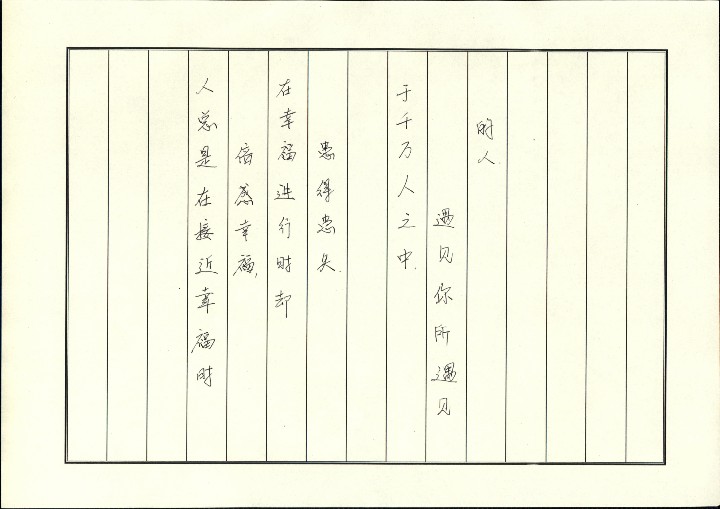 人总是在接近幸福时
倍感幸福,
在幸福进行时却
患得患失.
于千万人之中.
遇见你所遇见
的人.